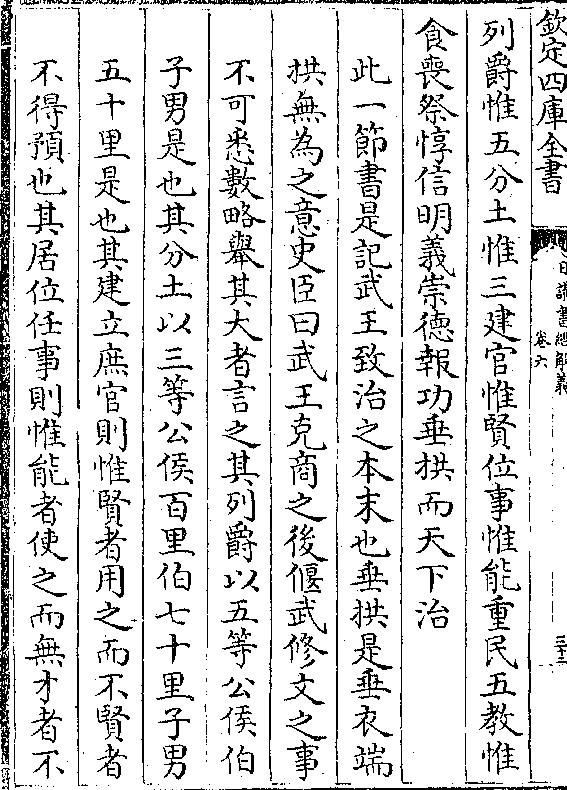 欽定四庫全書
日講書經解義
卷六
三十三
列爵惟五分土惟三建官惟賢位事惟能重民五教惟
食喪祭惇信明義崇德報功垂拱而天下治
此一節書是記武王致治之本末也垂拱是垂衣端
拱無為之意史臣曰武王克商之後偃武修文之事
不可悉數略舉其大者言之其列爵以五等公侯伯
子男是也其分土以三等公侯百里伯七十里子男
五十里是也其建立庶官則惟賢者用之而不賢者
不得預也其居位任事則惟能者使之而無才者不